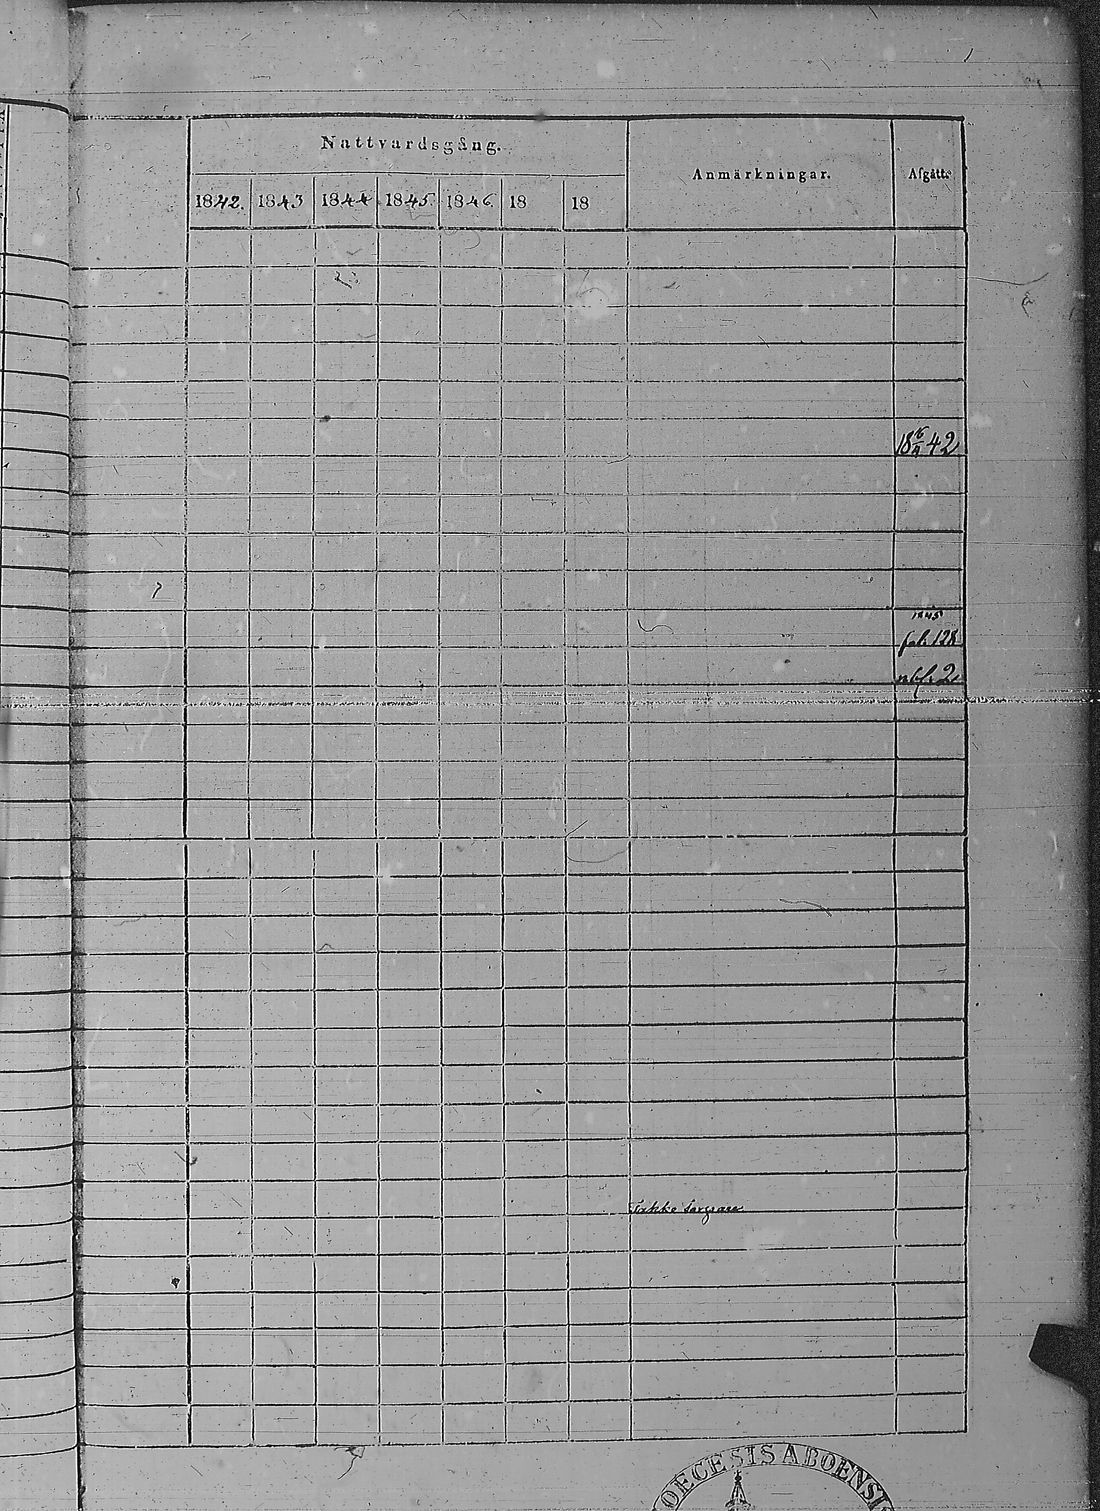 Nattvardsgång.
Anmärkningar.
Afgått.
1842. 1843 1844 1845. 1846. 18 18
18 42
1845
fol. 128
2
OECESIS ABOENSI